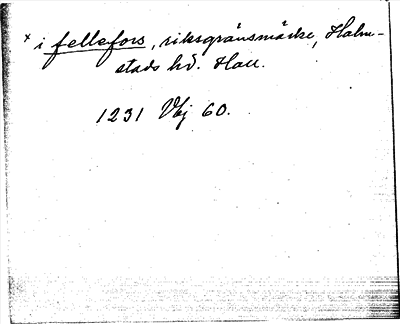 × i fellefors, riksgränsmärke, Halm-
stads hd. Hall.
1231 Vbj 60.